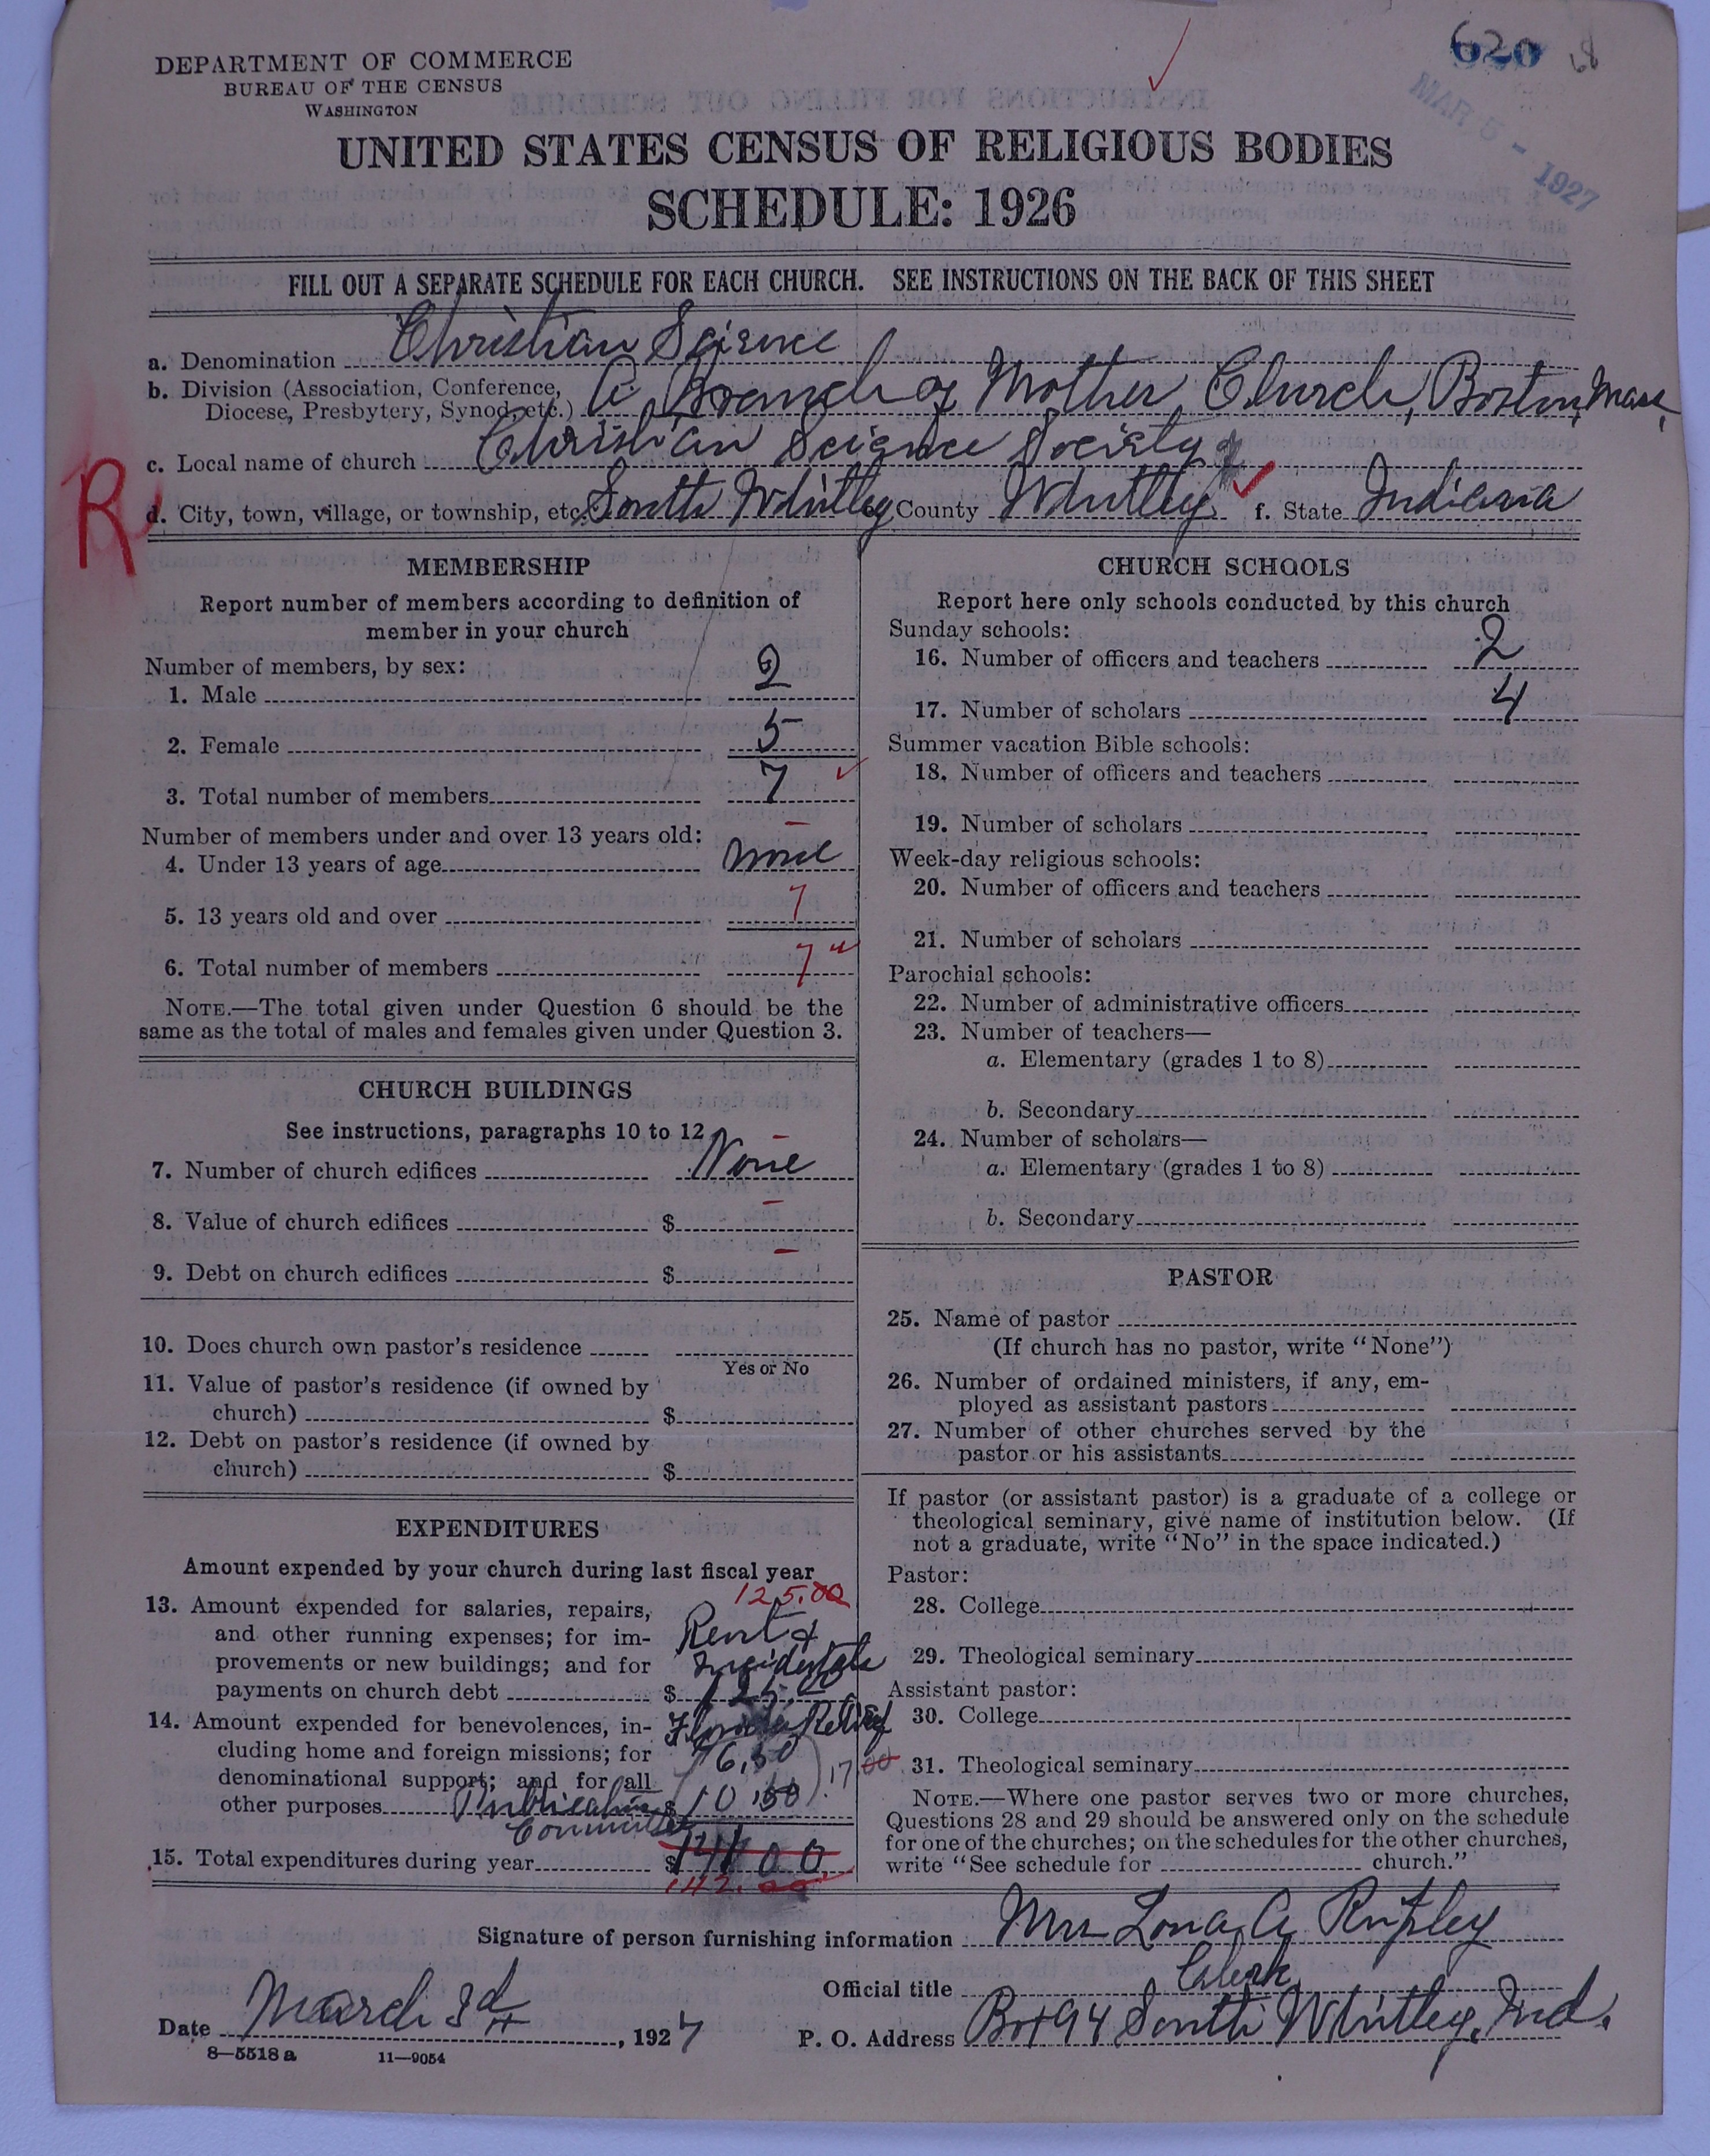 620 68
MAR 5 - 1927
DEPARTMENT OF COMMERCE
BUREAU OF THE CENSUS
WASHINGTON
UNITED STATES CENSUS OF RELIGIOUS BODIES
SCHEDULE: 1926
FILL OUT A SEPARATE SCHEDULE FOR EACH CHURCH. SEE INSTRUCTIONS ON THE BACK OF THIS SHEET
a. Denomination Christian Science
b. Division (Association, Conference,
Diocese, Presbytery, Synod, etc.) A Branch of Mother Church, Boston, Mass.
c. Local name of church Christian Science Society of
R
d. City, town, village, or township, etc. South Whitley e. County Whitley f. State Indiana
MEMBERSHIP
Report number of members according to definition of
member in your church
Number of members, by sex:
1. Male 2
2. Female 5
3. Total number of members 7
Number of members under and over 13 years old:
4. Under 13 years of age none
5. 13 years old and over 7
6. Total number of members 7
NOTE.—The total given under Question 6 should be the
same as the total of males and females given under Question 3.
CHURCH BUILDINGS
See instructions, paragraphs 10 to 12
7. Number of church edifices None
8. Value of church edifices $ -
9. Debt on church edifices $ -
10. Does church own pastor's residence
Yes or No
11. Value of pastor's residence (if owned by
church) $
12. Debt on pastor's residence (if owned by
church) $
EXPENDITURES
Amount expended by your church during last fiscal year
125.00
13. Amount expended for salaries, repairs,
and other running expenses; for im- Rent &
provements or new buildings; and for Incidentals
payments on church debt $ 125.00
14. Amount expended for benevolences, in- Florida Relief
cluding home and foreign missions; for 6.50
denominational support; and for all 17.00
other purposes Publication $ 10.50
Committee
15. Total expenditures during year $
142.00
CHURCH SCHOOLS
Report here only schools conducted by this church
Sunday schools:
16. Number of officers and teachers 2
17. Number of scholars 4
Summer vacation Bible schools:
18. Number of officers and teachers
19. Number of scholars
Week-day religious schools:
20. Number of officers and teachers
21. Number of scholars
Parochial schools:
22. Number of administrative officers
23. Number of teachers—
a. Elementary (grades 1 to 8)
b. Secondary
24. Number of scholars—
a. Elementary (grades 1 to 8)
b. Secondary
PASTOR
25. Name of pastor
(If church has no pastor, write "None")
26. Number of ordained ministers, if any, em-
ployed as assistant pastors
27. Number of other churches served by the
pastor or his assistants
If pastor (or assistant pastor) is a graduate of a college or
theological seminary, give name of institution below. (If
not a graduate, write "No" in the space indicated.)
Pastor:
28. College
29. Theological seminary
Assistant pastor:
30. College
31. Theological seminary
NOTE.—Where one pastor serves two or more churches,
Questions 28 and 29 should be answered only on the schedule
for one of the churches; on the schedules for the other churches,
write "See schedule for church."
Signature of person furnishing information Mrs Lona A Rupley
Official title Clerk
Date March 3d, 1927 P. O. Address Box 94 South Whitley, Ind.
8—5518 a 11—9054